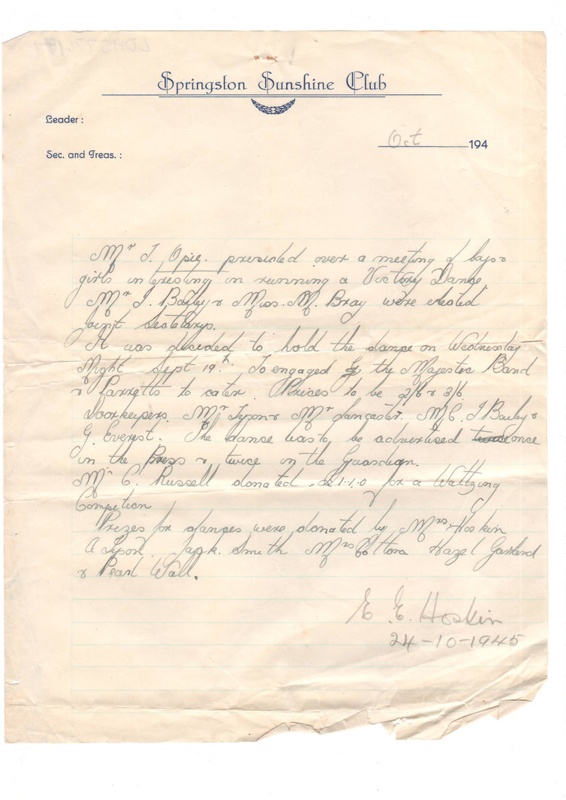 Springston Sunshine Club
Leader :
Sec. and Treas. :
Oct 194
Mr J. Opie. presided over a meeting of boys &
girls interesting in running a Victory Dance.
Mr J. Bailey & Miss. M. Bray were elected
joint
It was decided to hold the dance on Wednesday
Night Sept 19th. To engaged the Majestic Band
& Parretts to cater. Prices to be 2/6 & 3/6.
Doorkeepers Mr Tyson & Mr Lancaster. M.C. J Bailey &
G. Everest. The dance was to be advertised once
in the Press & twice in the Guardian.
Mr C. Russell donated £1-1-0 for a Waltzing
Competion
Prizes for dances were donated by Mrs Hoskin
A Tyson. Jack. Smith Mrs Hazel Garland
& Pearl Wall.
E. E. Hoskin
24-10-1945